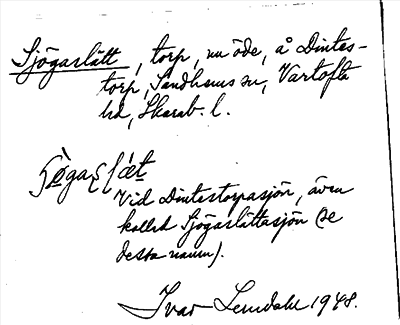 Sjögarslätt, torp, nu öde, å Dintes-
torp, Sandhems sn, Vartofta
hd, Skarab. l.
Vid Dintestorpasjön, även
kallad Sjögarslättasjön (se
dessa namn).
Ivar Lundahl 1948.